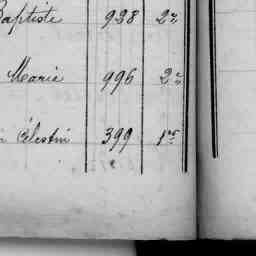 Baptiste 938 2e
Marie 996 2e
Célestin 399 1er